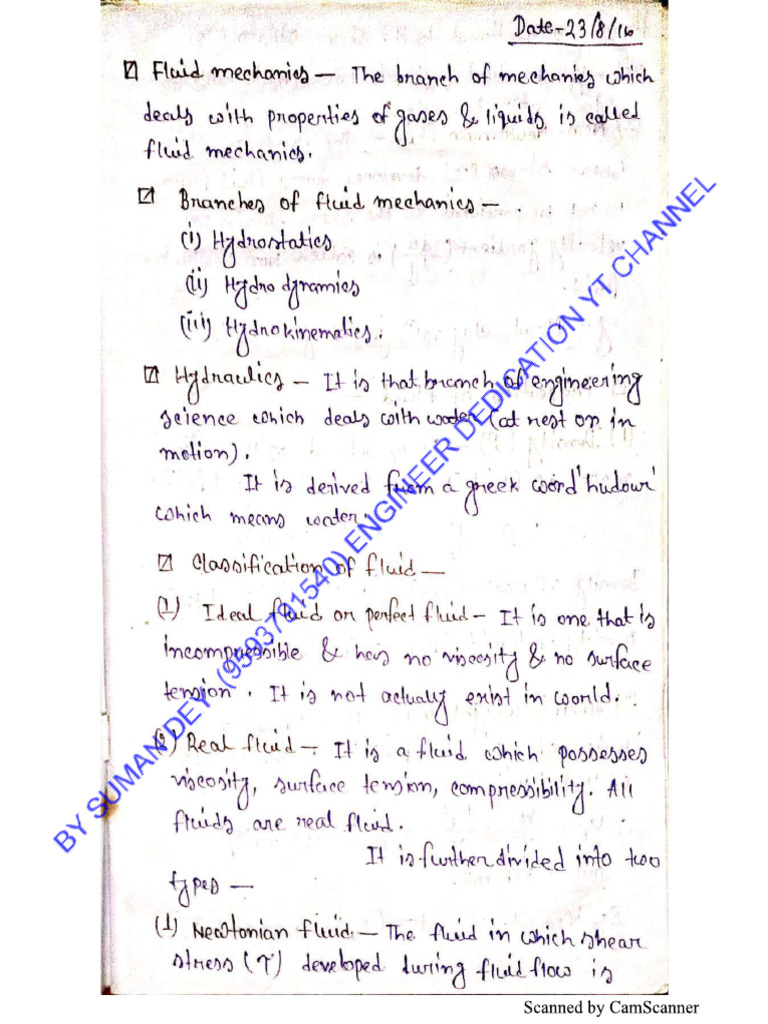 Date-23/8/16
Fluid mechanics - The branch of mechanics which
deals with properties of gases & liquids is called
fluid mechanics.
Branches of fluid mechanics -
(i) Hydrostatics
(ii) Hydro dynamics
(iii) Hydrokinematics.
Hydraulics - It is that branch of engineering
science which deals with water (at rest or in
motion).
It is derived from a greek word 'hudour'
which means water.
Classification of fluid -
(1) Ideal fluid or perfect fluid - It is one that is
incompressible & has no viscosity & no surface
tension. It is not actually exist in world.
(2) Real fluid - It is a fluid which possesses
viscosity, surface tension, compressibility. All
fluids are real fluid.
It is further divided into two
types -
(1) Newtonian fluid - The fluid in which shear
stress (τ) developed during fluid flow is
BY SUMAN DEY (9593791540) ENGINEER DEDICATION YT CHANNEL
Scanned by CamScanner